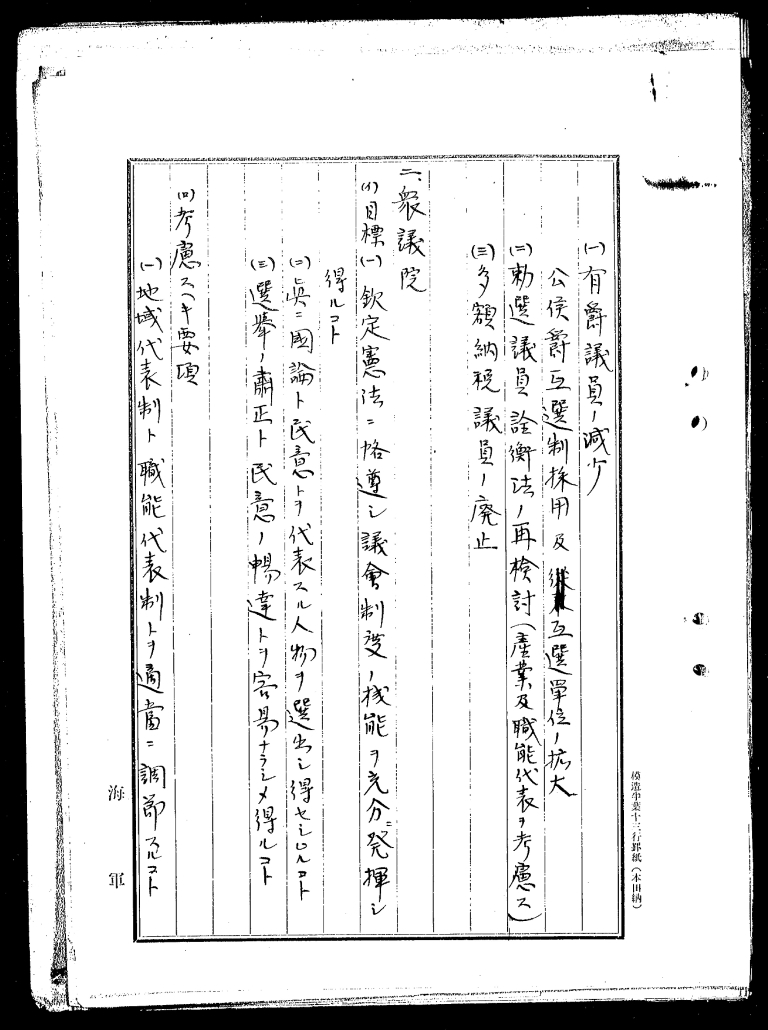 (一)有爵議員ノ減少
公侯爵互選制採用及互選單位ノ拡大
(二)勅選議員詮衡法ノ再検討(産業及職能代表ヲ考慮ス)
(三)多額納税議員ノ廃止
二、衆議院
(イ)目標(一)欽定憲法ニ恪遵シ議會制度ノ機能ヲ充分ニ発揮シ
得ルコト
(二)眞ニ國論ト民意トヲ代表スル人物ヲ選出シ得セシムルコト
(三)選挙ノ肅正ト民意ノ暢達トヲ容易ナラシメ得ルコト
(ロ)考慮スヘキ要項
(一)地域代表制ト職能代表制トヲ適當ニ調節スルコト
海軍
模造半葉十三行罫紙(本田納)